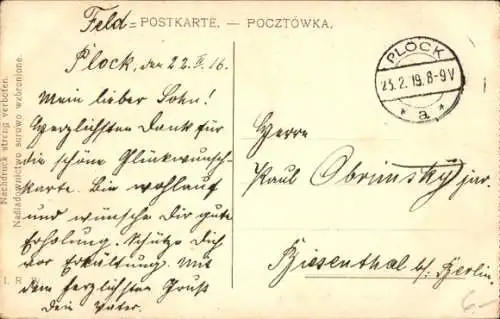 Feld=POSTKARTE. — POCZTÓWKA.
Plock, den 22. II. 16.
Mein lieber Sohn!
Herzlichsten Dank für
die schöne Glückwunsch-
karte. Bin wohlauf
und wünsche Dir gute
Erholung. Schütze Dich
vor Erkältung. Mit
dem herzlichsten Gruß
Dein Vater.
Nachdruck streng verboten.
Naśladownictwo surowo wzbronione.
I. R. W.
PLOCK
23. 2. 19. 8-9 V
* a *
Herrn
Paul Obrimsky jun.
Biesenthal b/ Berlin.